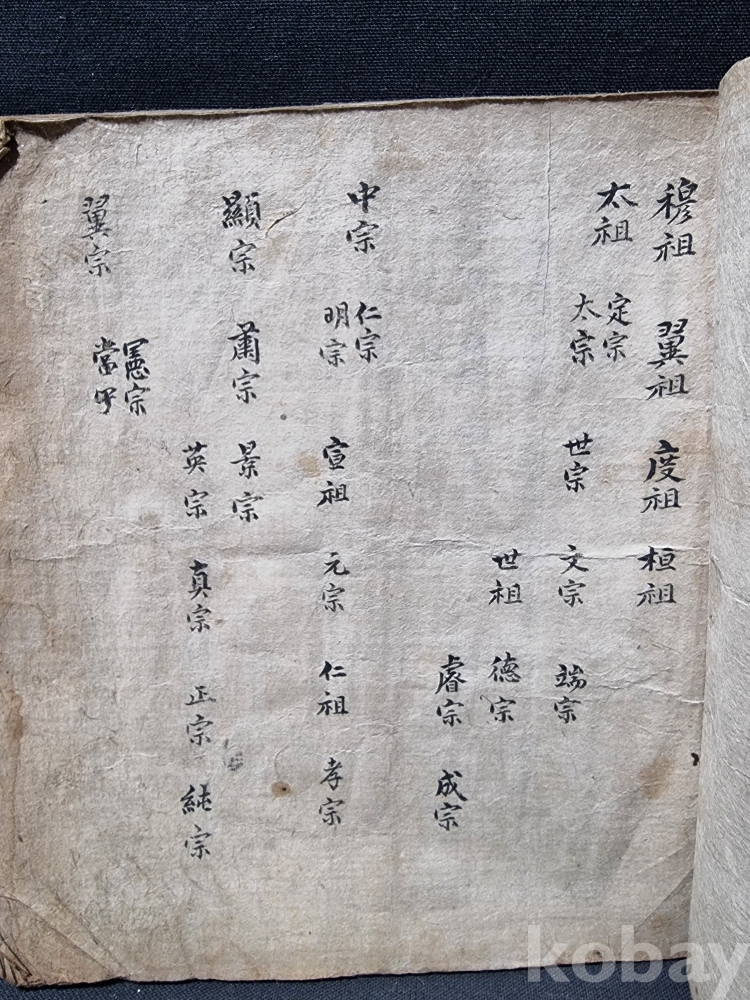 穆祖 翼祖 度祖 桓祖
太祖 定宗
太宗 世宗 文宗 端宗
世祖 德宗
睿宗 成宗
中宗 仁宗
明宗 宣祖 元宗 仁祖 孝宗
顯宗 肅宗 景宗
英宗 真宗 正宗 純宗
翼宗 憲宗
當宁
kobay